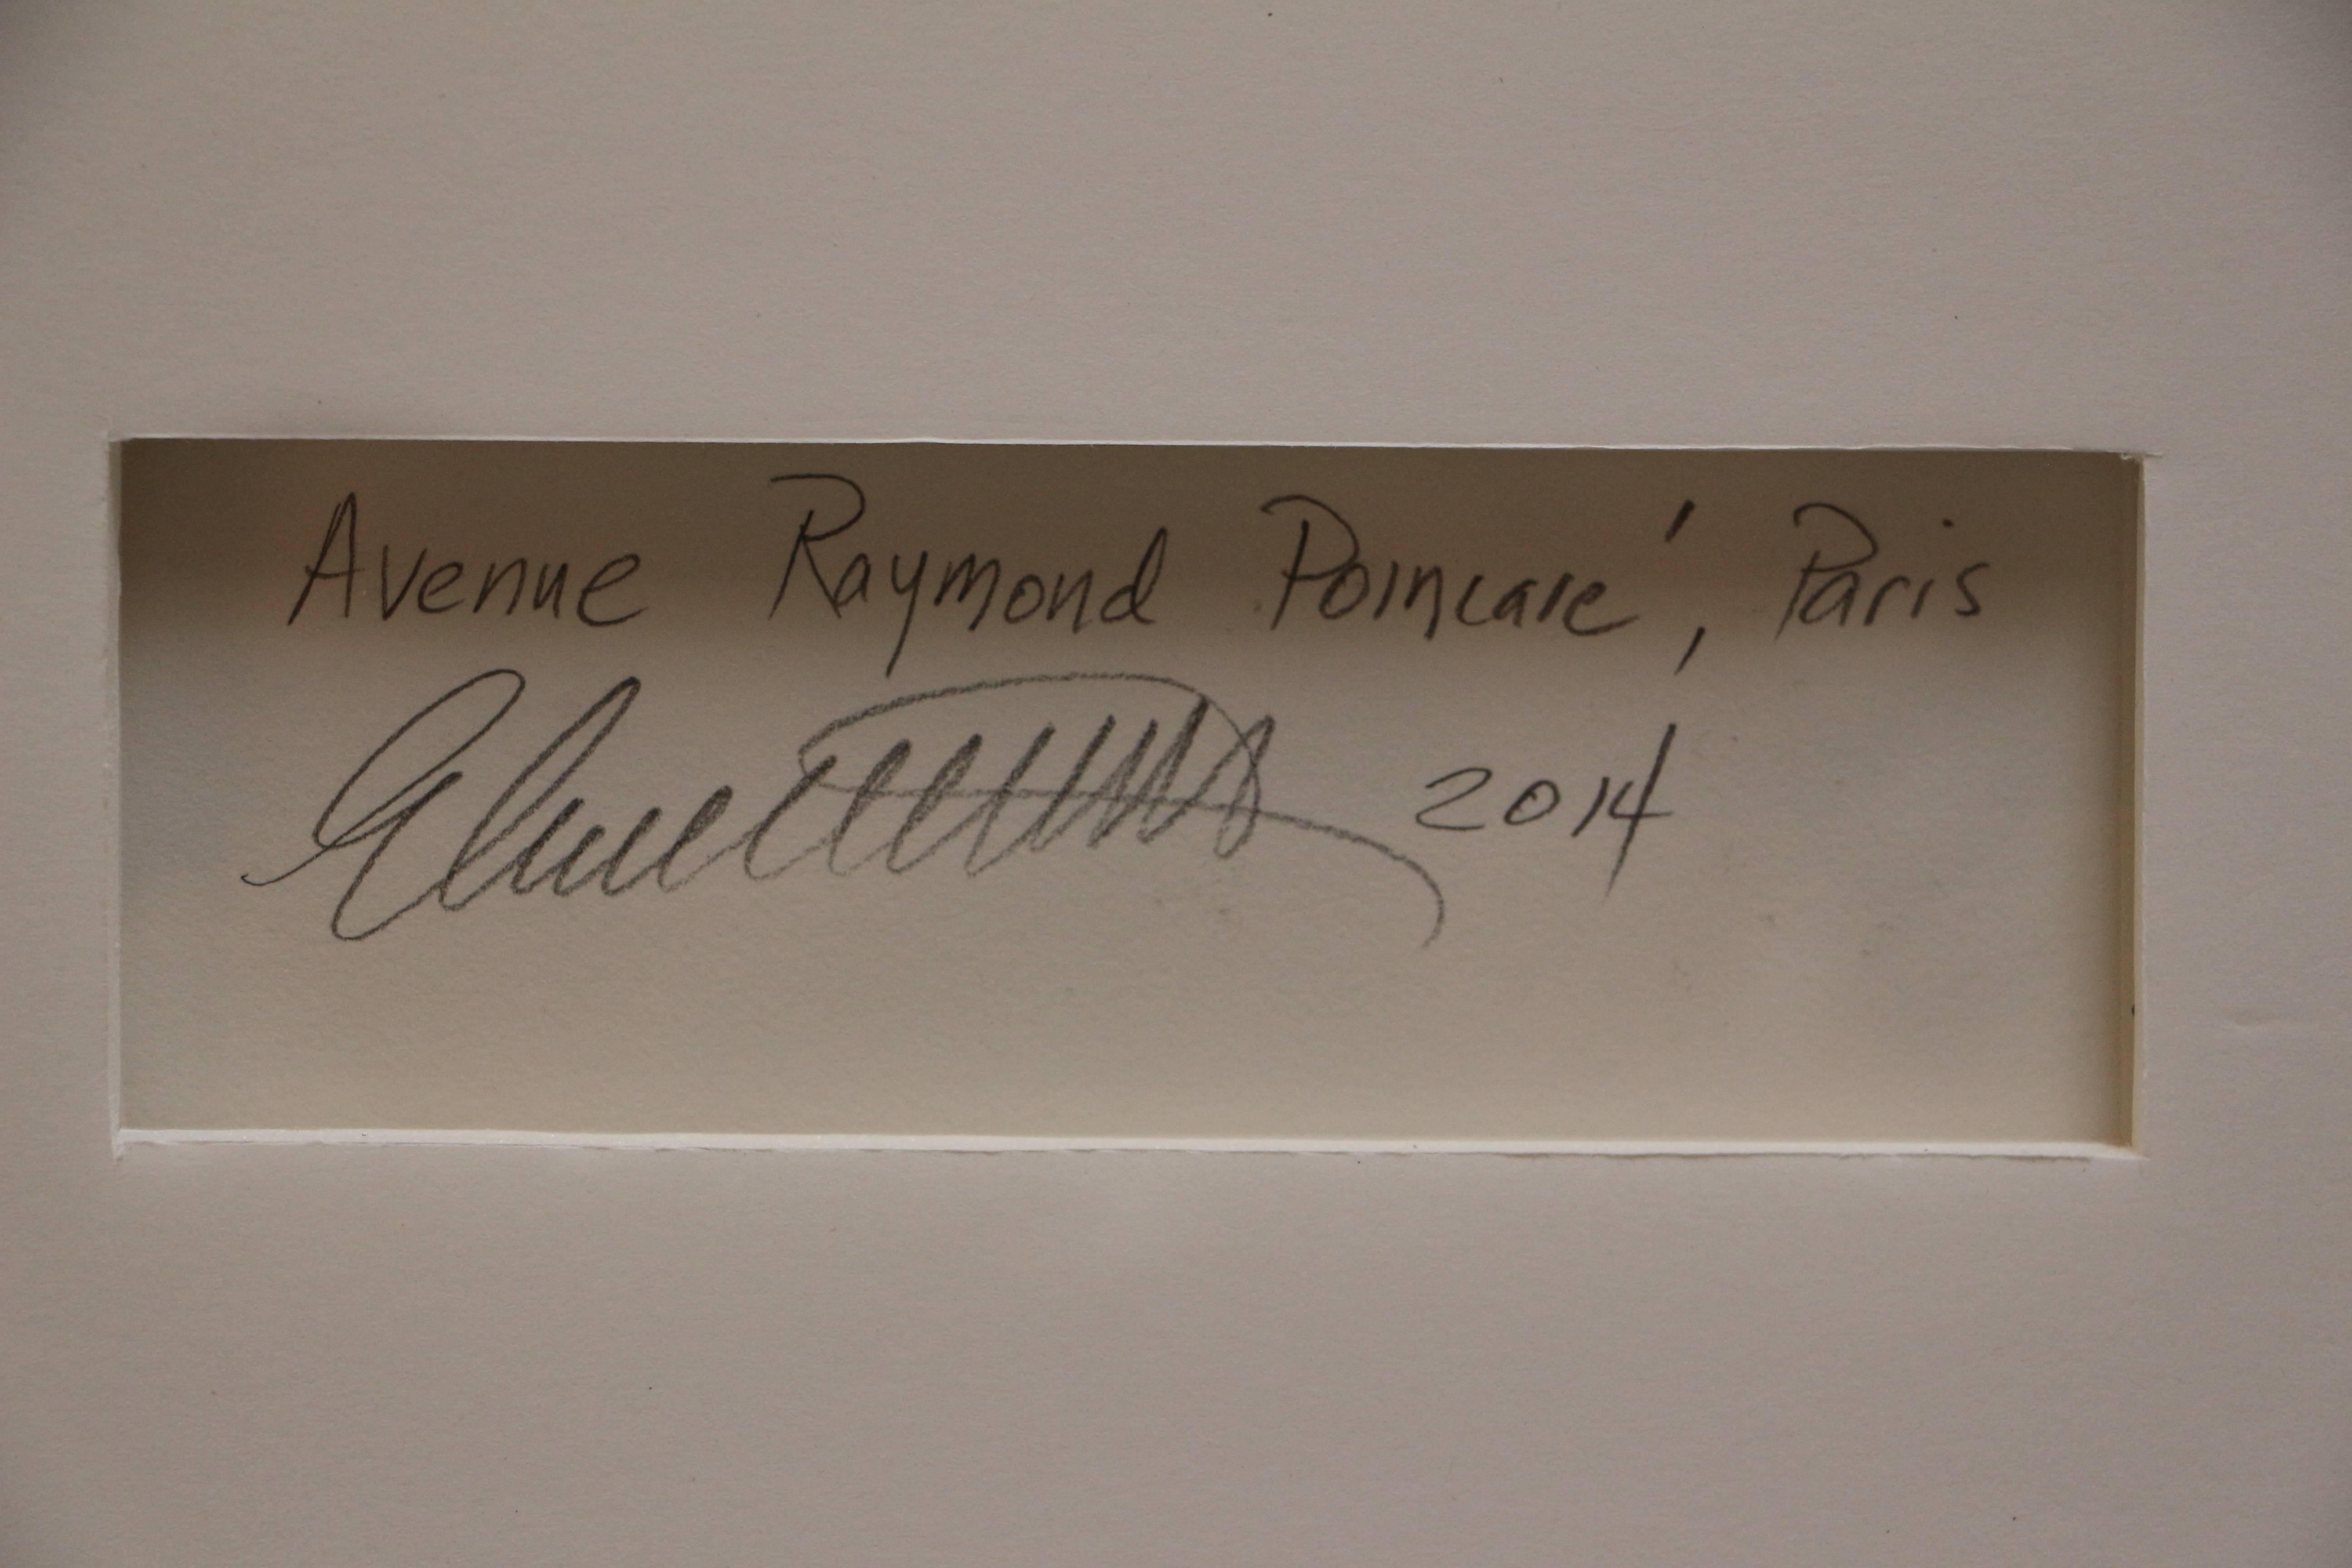 Avenue Raymond Poincaré, Paris
2014